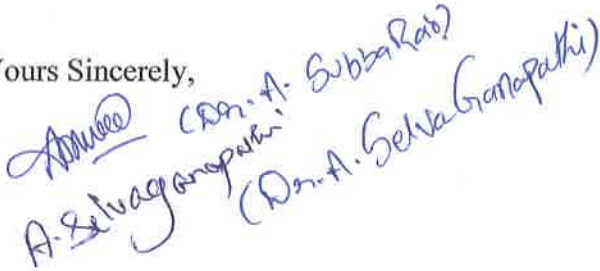 Yours Sincerely,
(Dr. A. SubbaRao)
A. Selvaganapathi
(Dr. A. SelvaGanapathi)